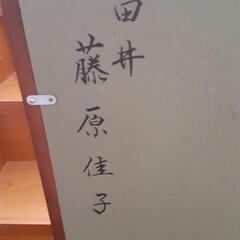 田井
藤原佳子